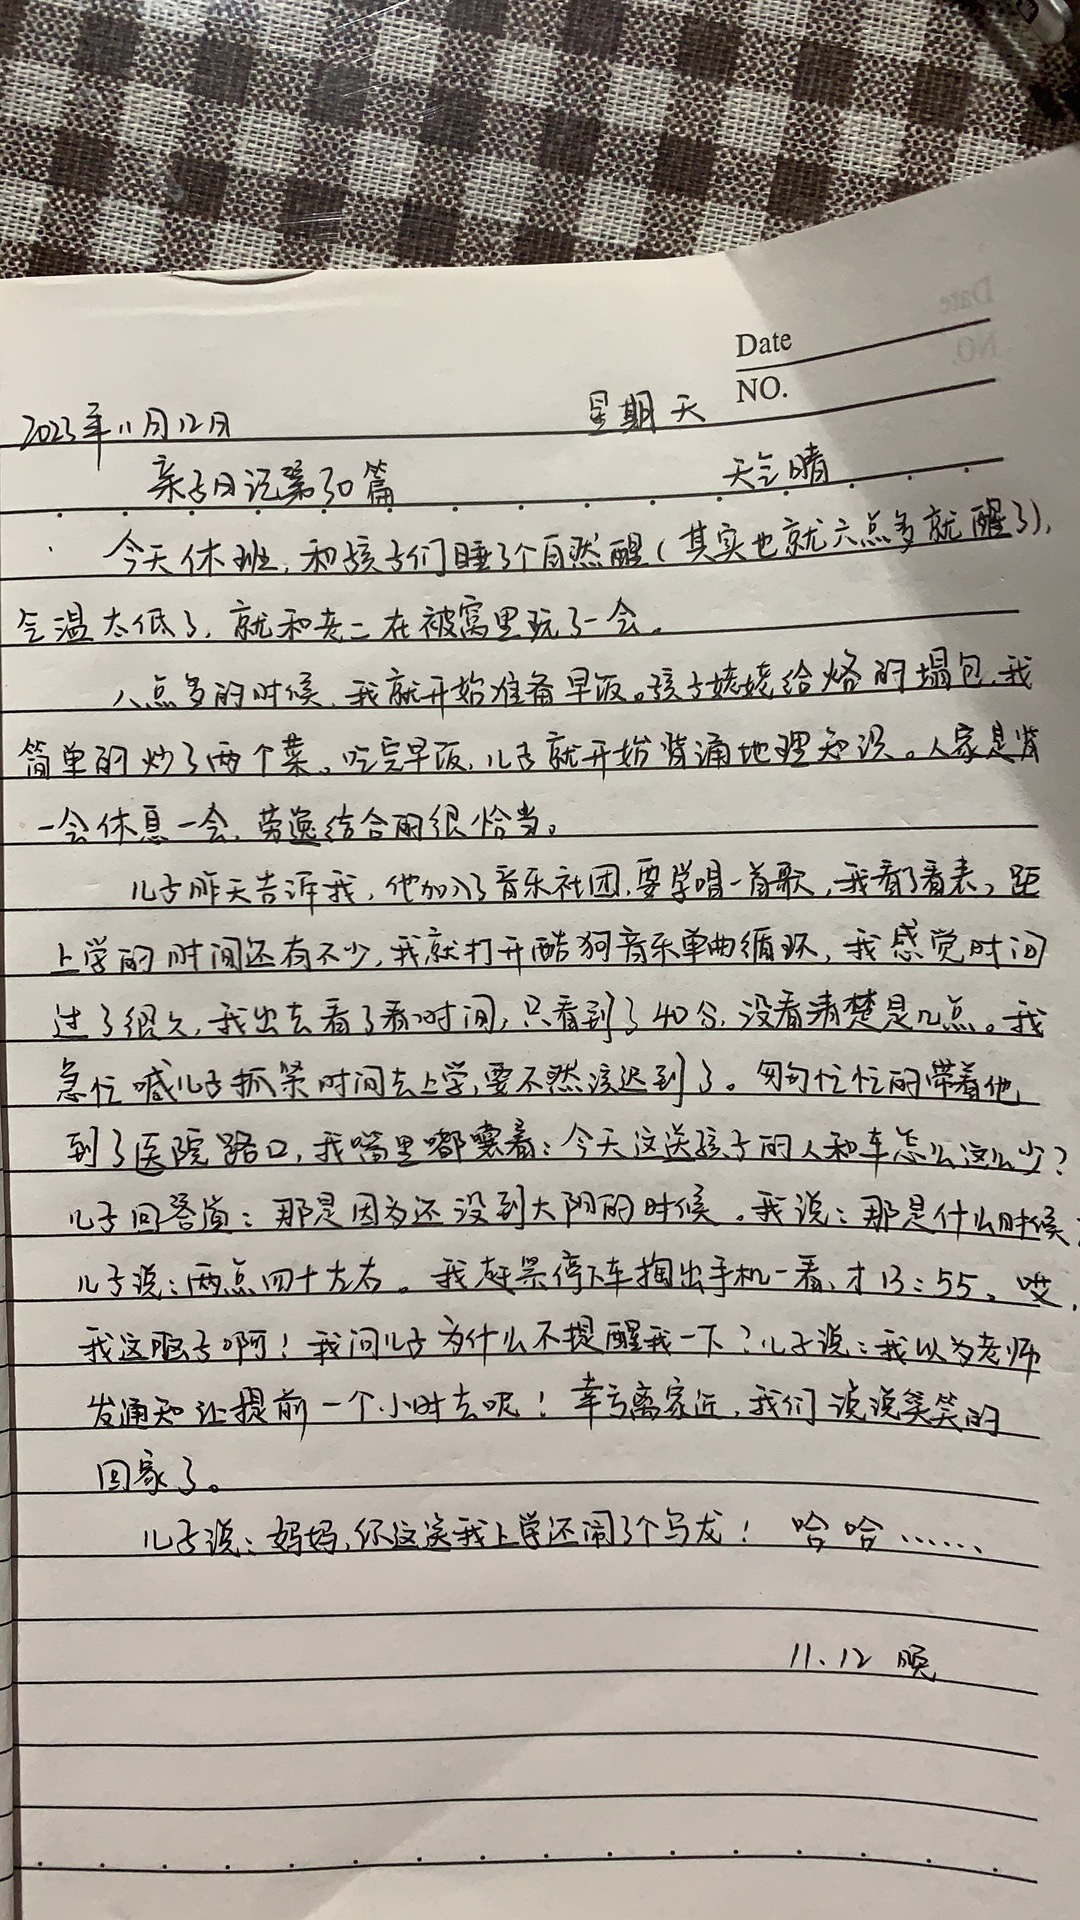 Date
NO.
2023年11月12日 星期天
亲子日记第30篇 天气晴
今天休班，和孩子们睡了个自然醒（其实也就六点多就醒了），
气温太低了，就和老二在被窝里玩了一会。
八点多的时候，我就开始准备早饭。孩子姥姥给烙的塌包，我
简单的炒了两个菜。吃完早饭，儿子就开始背诵地理知识。人家是背
一会休息一会，劳逸结合的很恰当。
儿子昨天告诉我，他加入了音乐社团，要学唱一首歌，我看了看表，距
上学的时间还有不少，我就打开酷狗音乐单曲循环，我感觉时间
过了很久，我出去看了看时间，只看到了40分，没看清楚是几点。我
急忙喊儿子抓紧时间去上学，要不然该迟到了。匆匆忙忙的带着他
到了医院路口，我嘴里嘟囔着：今天这送孩子的人和车怎么这么少？
儿子回答道：那是因为还没到大部的时候。我说：那是什么时候？
儿子说：两点四十左右。我赶紧停下车掏出手机一看，才13：55。哎，
我这脑子啊！我问儿子为什么不提醒我一下？儿子说：我以为老师
发通知让提前一个小时去呢！幸亏离家近，我们说说笑笑的
回家了。
儿子说：妈妈，你这送我上学还闹了个乌龙！ 哈哈……
11.12 晚